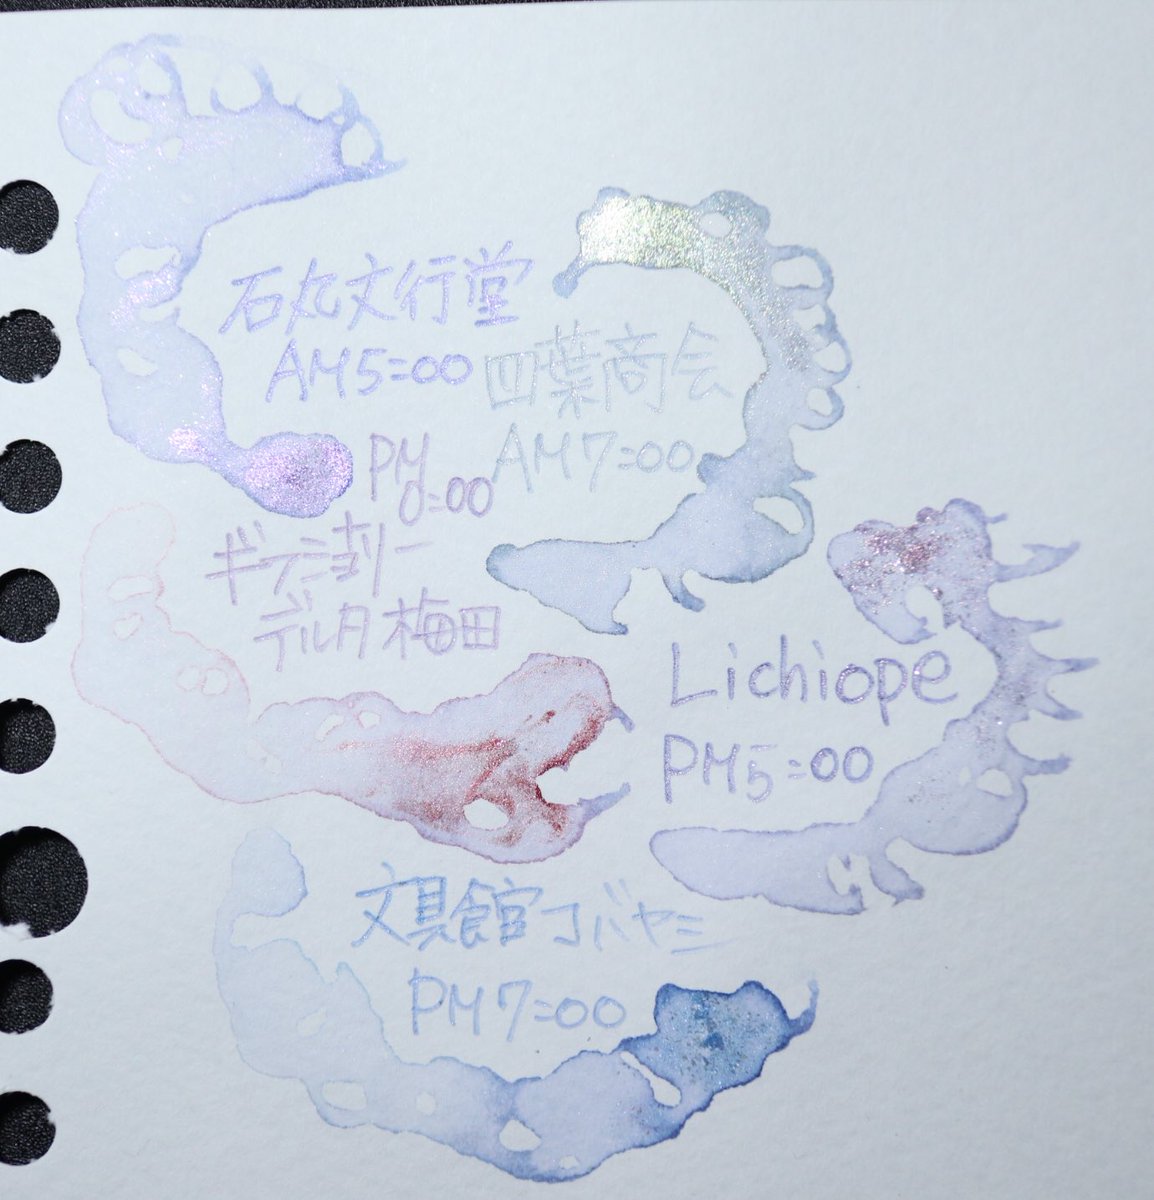 石丸文行堂
AM5:00
四葉商会
AM7:00
PM
0:00
デルタ梅田
Lichiope
PM5:00
文具館コバヤシ
PM7:00